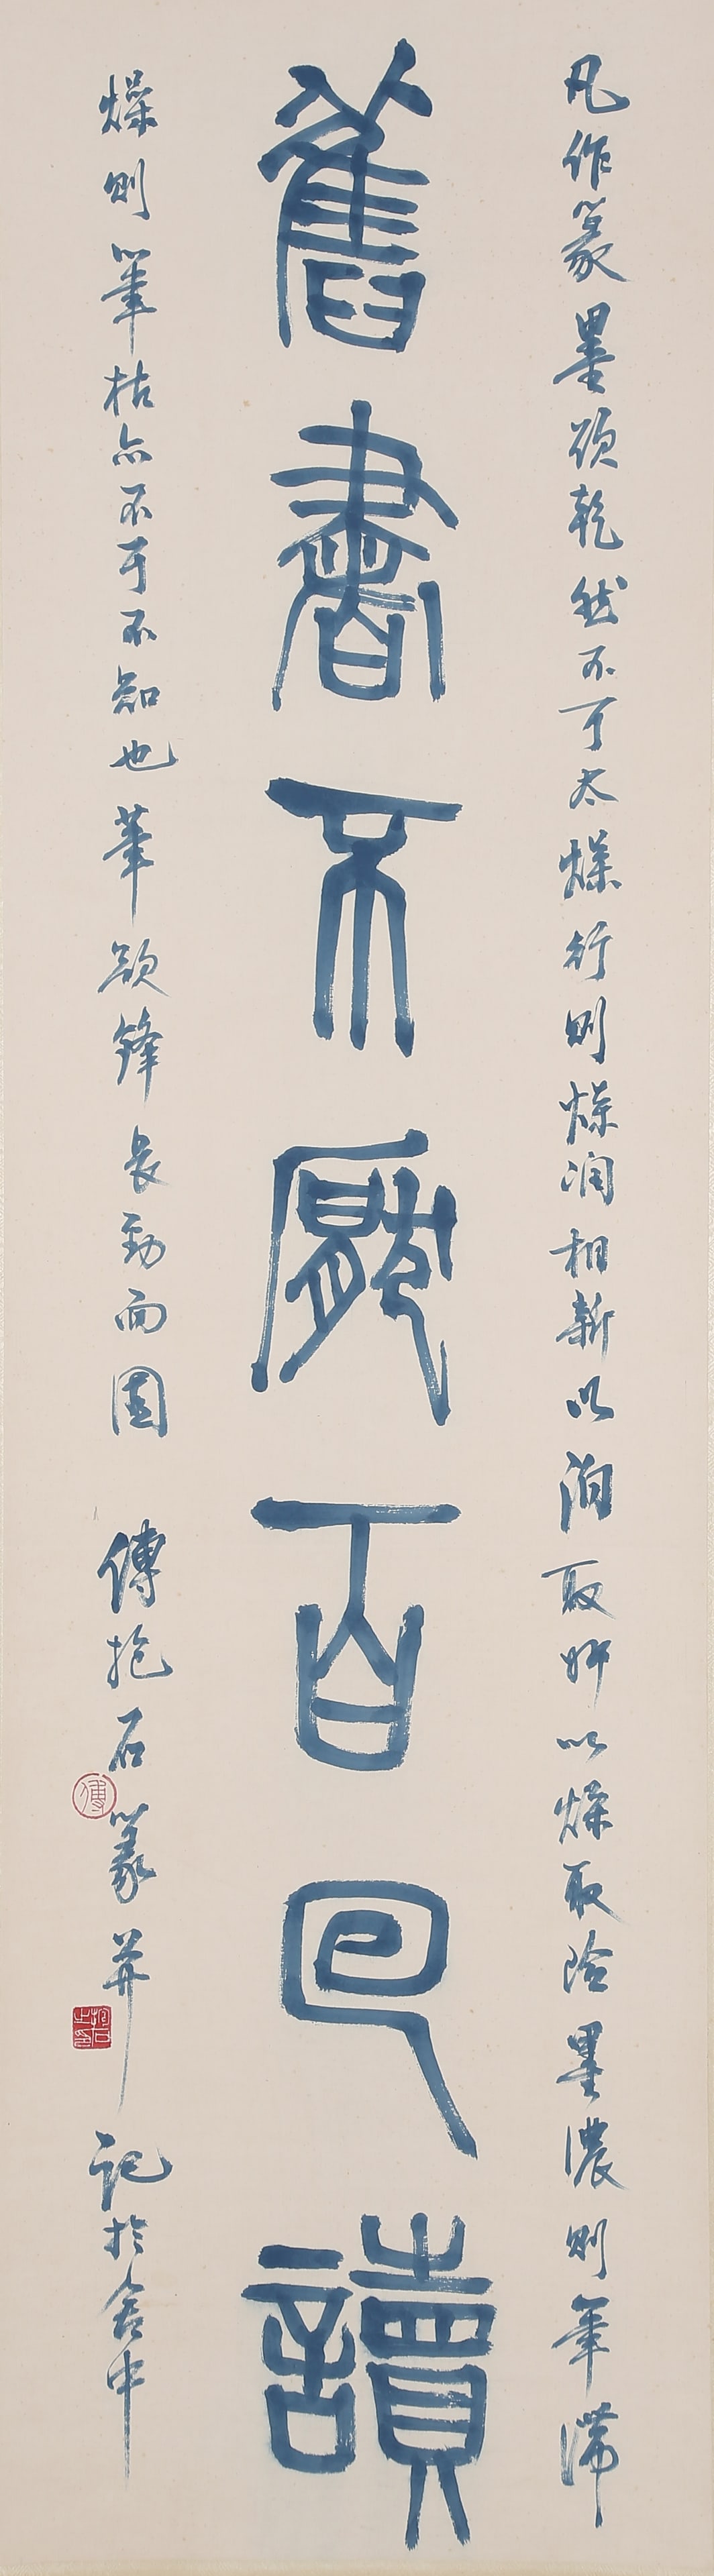 凡作篆墨欲乾然不可太燥行則燥潤相雜以潤取妍以燥取險墨濃則筆滯
舊書不厭百回讀
燥則筆枯亦不可不知也筆欲鋒長勁而圓
傅抱石篆并記於舍中
傅